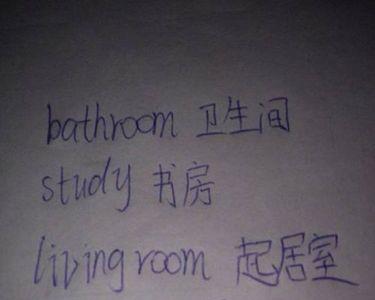 bathroom 卫生间
study 书房
living room 起居室